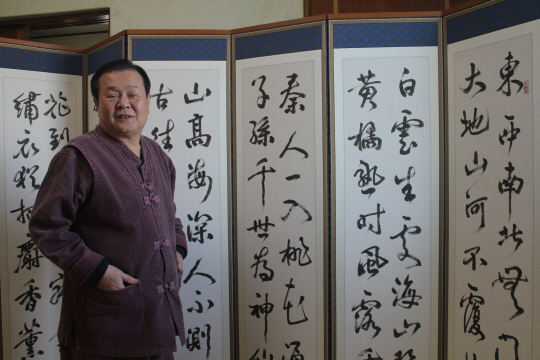 東西南北無
大地山河不覆
白雲生處海山
黃橘熟時風露
秦人一入桃花源
子孫千世為神仙
山高海深人不測
古往
花到
繡衣猶拂麝香薰